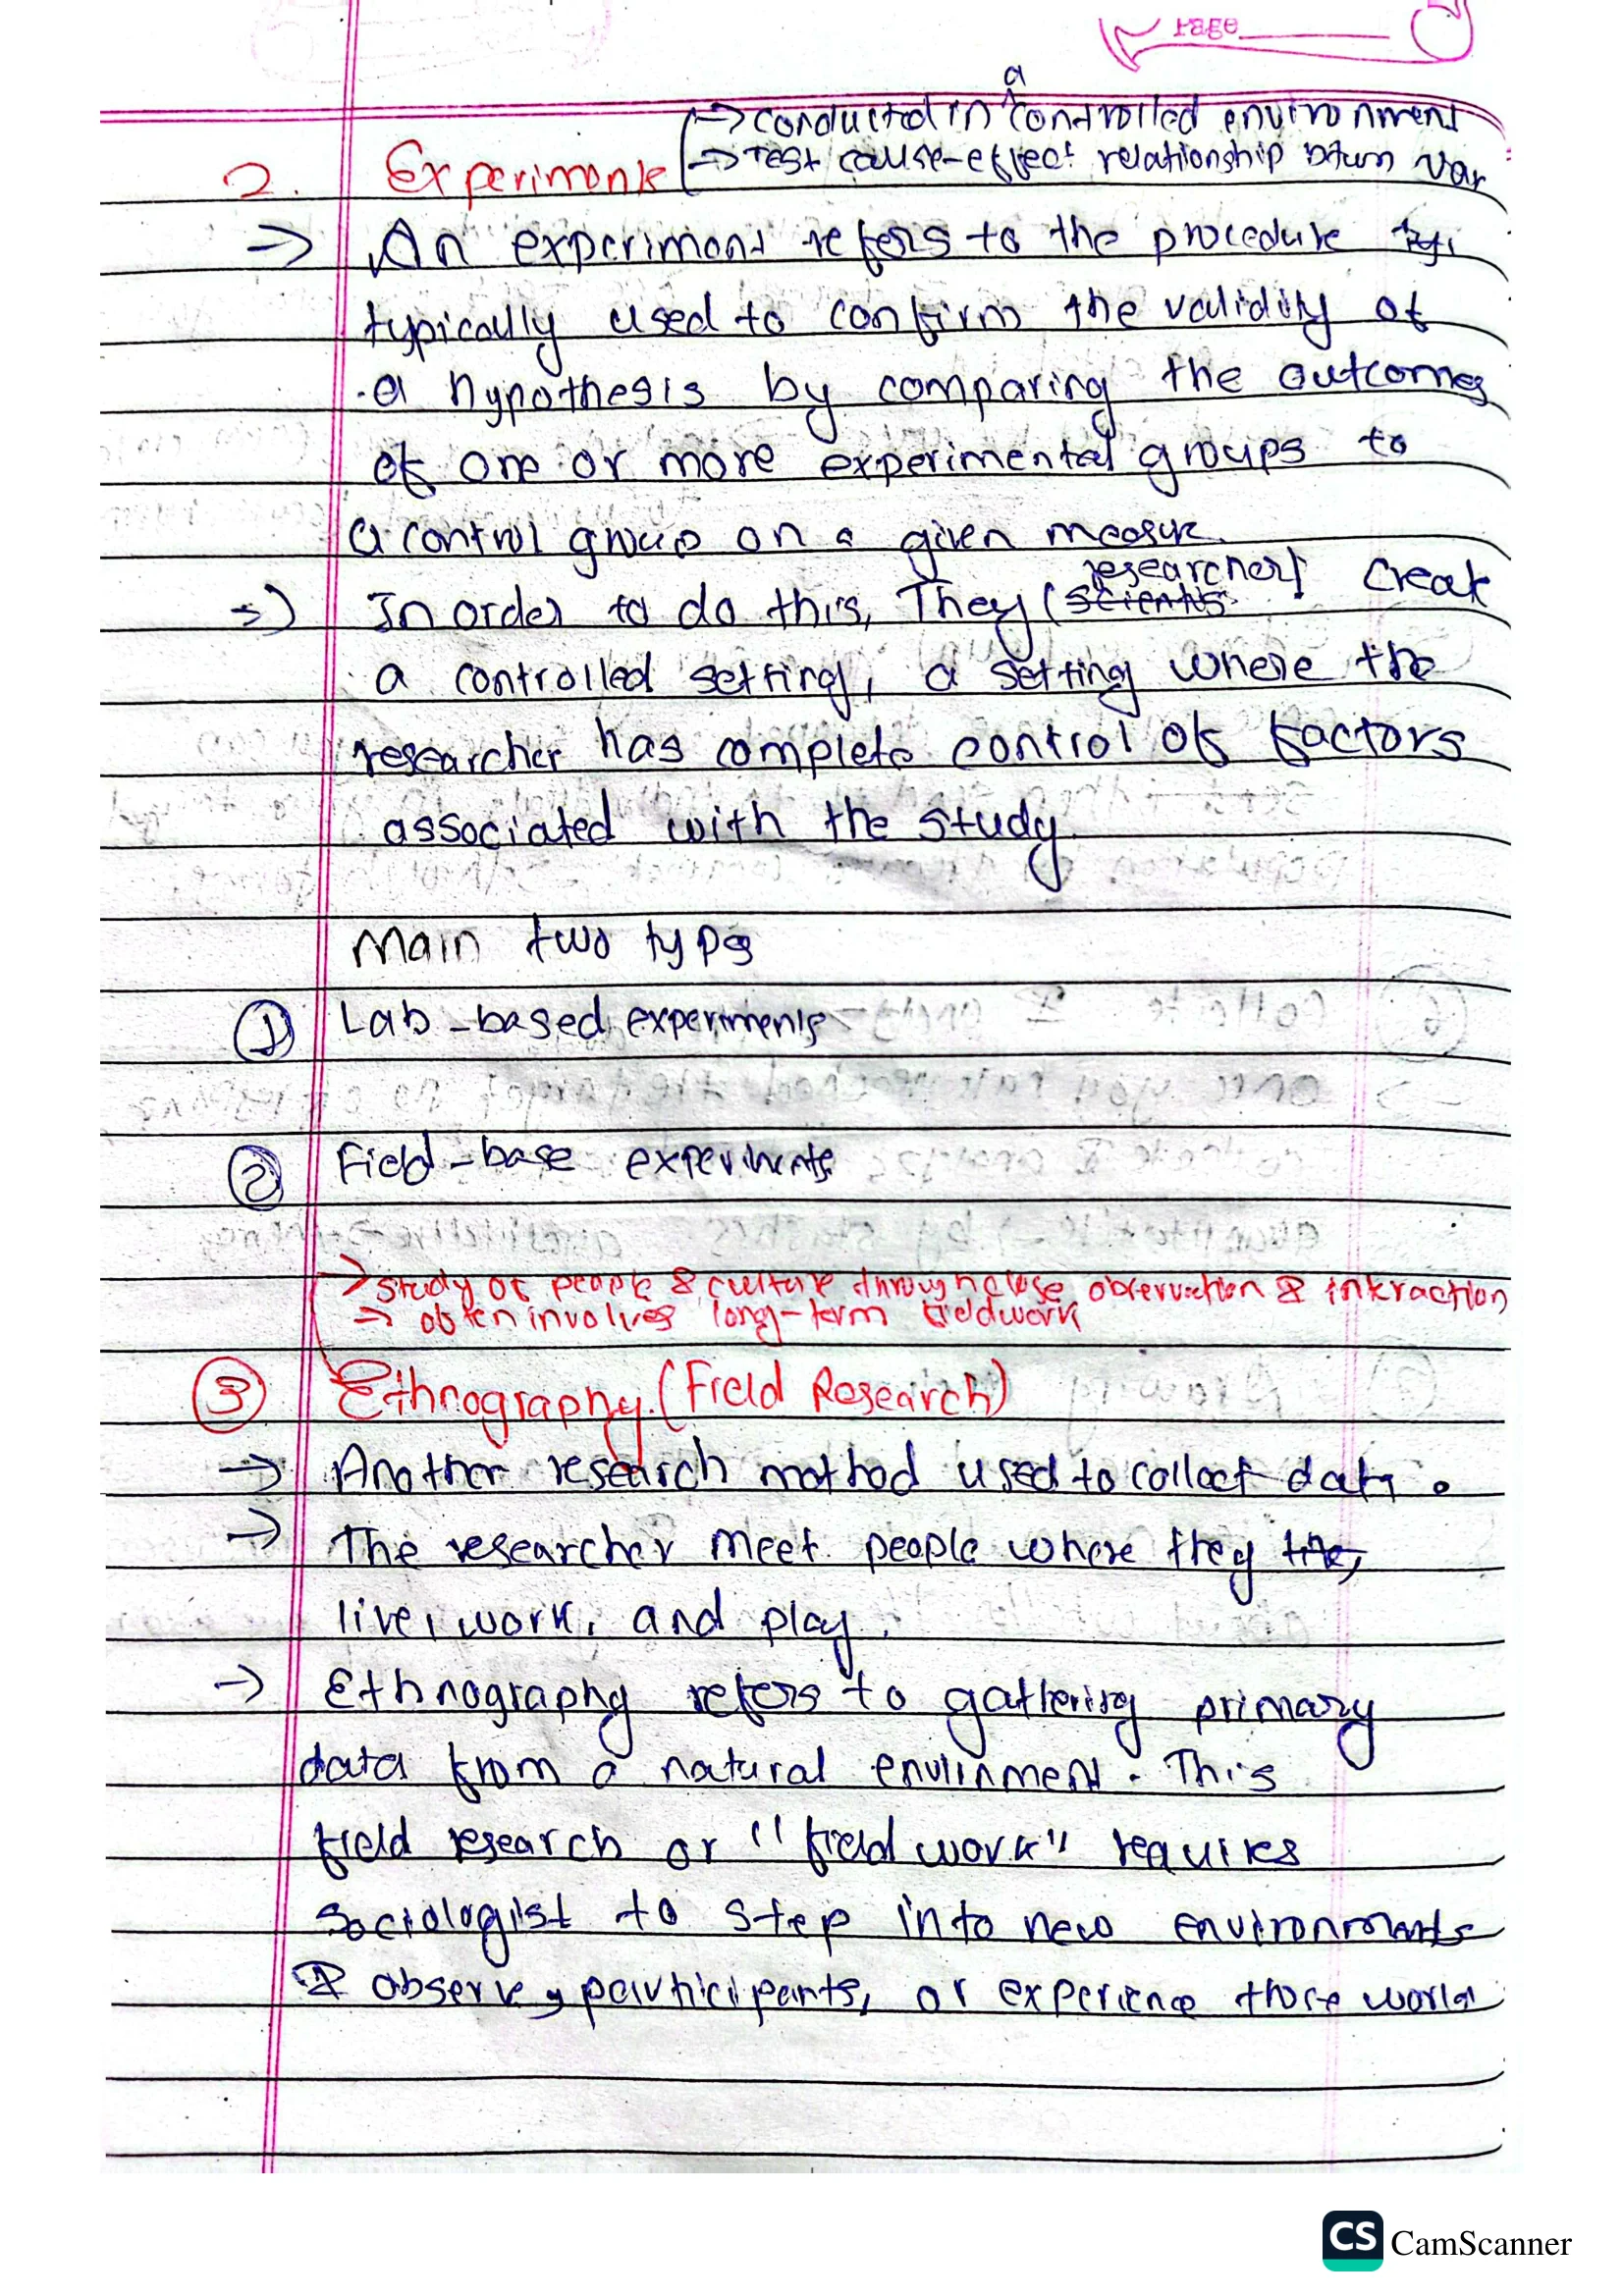 Page
a
→ conducted in controlled environment
→ Test cause-effect relationship betwn var
2. Experiments
→ An experiment refers to the procedure
typically used to confirm the validity of
a hypothesis by comparing the outcomes
of one or more experimental groups to
a control group on a given measure.
researcher)
⇒ In order to do this, They (scientis create
a controlled setting, a setting where the
researcher has complete control of factors
associated with the study
Main two types
① Lab-based experiments
② Field-base experiments
→ study of people & culture through close observation & interaction
→ often involves long-term fieldwork
③ Ethnography. (Field Research)
→ Another research method used to collect data.
→ The researcher meet people where they the,
live, work, and play.
→ Ethnography refers to gathering primary
data from a natural envirinment. This
field research or "field work" requires
Sociologist to step into new environments
& observe, participants, or experience those world
CS CamScanner